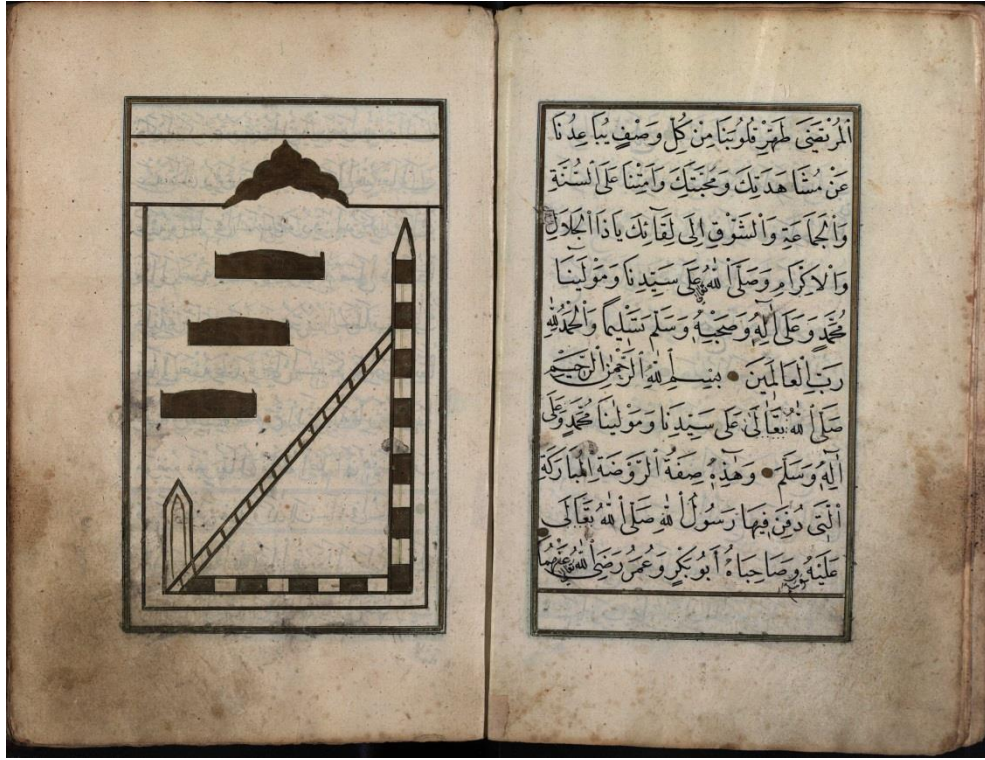 الْمُرْتَضَى طَهِّرْ قُلُوبَنَا مِنْ كُلِّ وَصْفٍ يُبَاعِدُنَا
عَنْ مُشَاهَدَتِكَ وَمَحَبَّتِكَ وَاَمِتْنَا عَلَى السُّنَّةِ
وَالْجَمَاعَةِ وَالشَّوْقِ اِلٰى لِقَائِكَ يَا ذَا الْجَلَالِ
وَالْاِكْرَامِ وَصَلَّى اللّٰهُ تعالى عَلَى سَيِّدِنَا وَمَوْلٰينَا
مُحَمَّدٍ وَعَلَى آلِهِ وَصَحْبِهِ وَسَلَّمَ تَسْلِيمًا وَالْحَمْدُ لِلّٰهِ
رَبِّ الْعَالَمِينَ بِسْمِ اللّٰهِ الرَّحْمٰنِ الرَّحِيمِ
صَلَّى اللّٰهُ تَعَالٰى عَلَى سَيِّدِنَا وَمَوْلٰينَا مُحَمَّدٍ وَعَلٰى
آلِهِ وَسَلَّمَ وَهٰذِهِ صِفَةُ الرَّوْضَةِ الْمُبَارَكَةِ
الَّتِي دُفِنَ فِيهَا رَسُولُ اللّٰهِ صَلَّى اللّٰهُ تَعَالٰى
عَلَيْهِ وسلم وَصَاحِبَاهُ اَبُو بَكْرٍ وَعُمَرُ رَضِيَ اللّٰهُ تعالى عَنْهُمَا